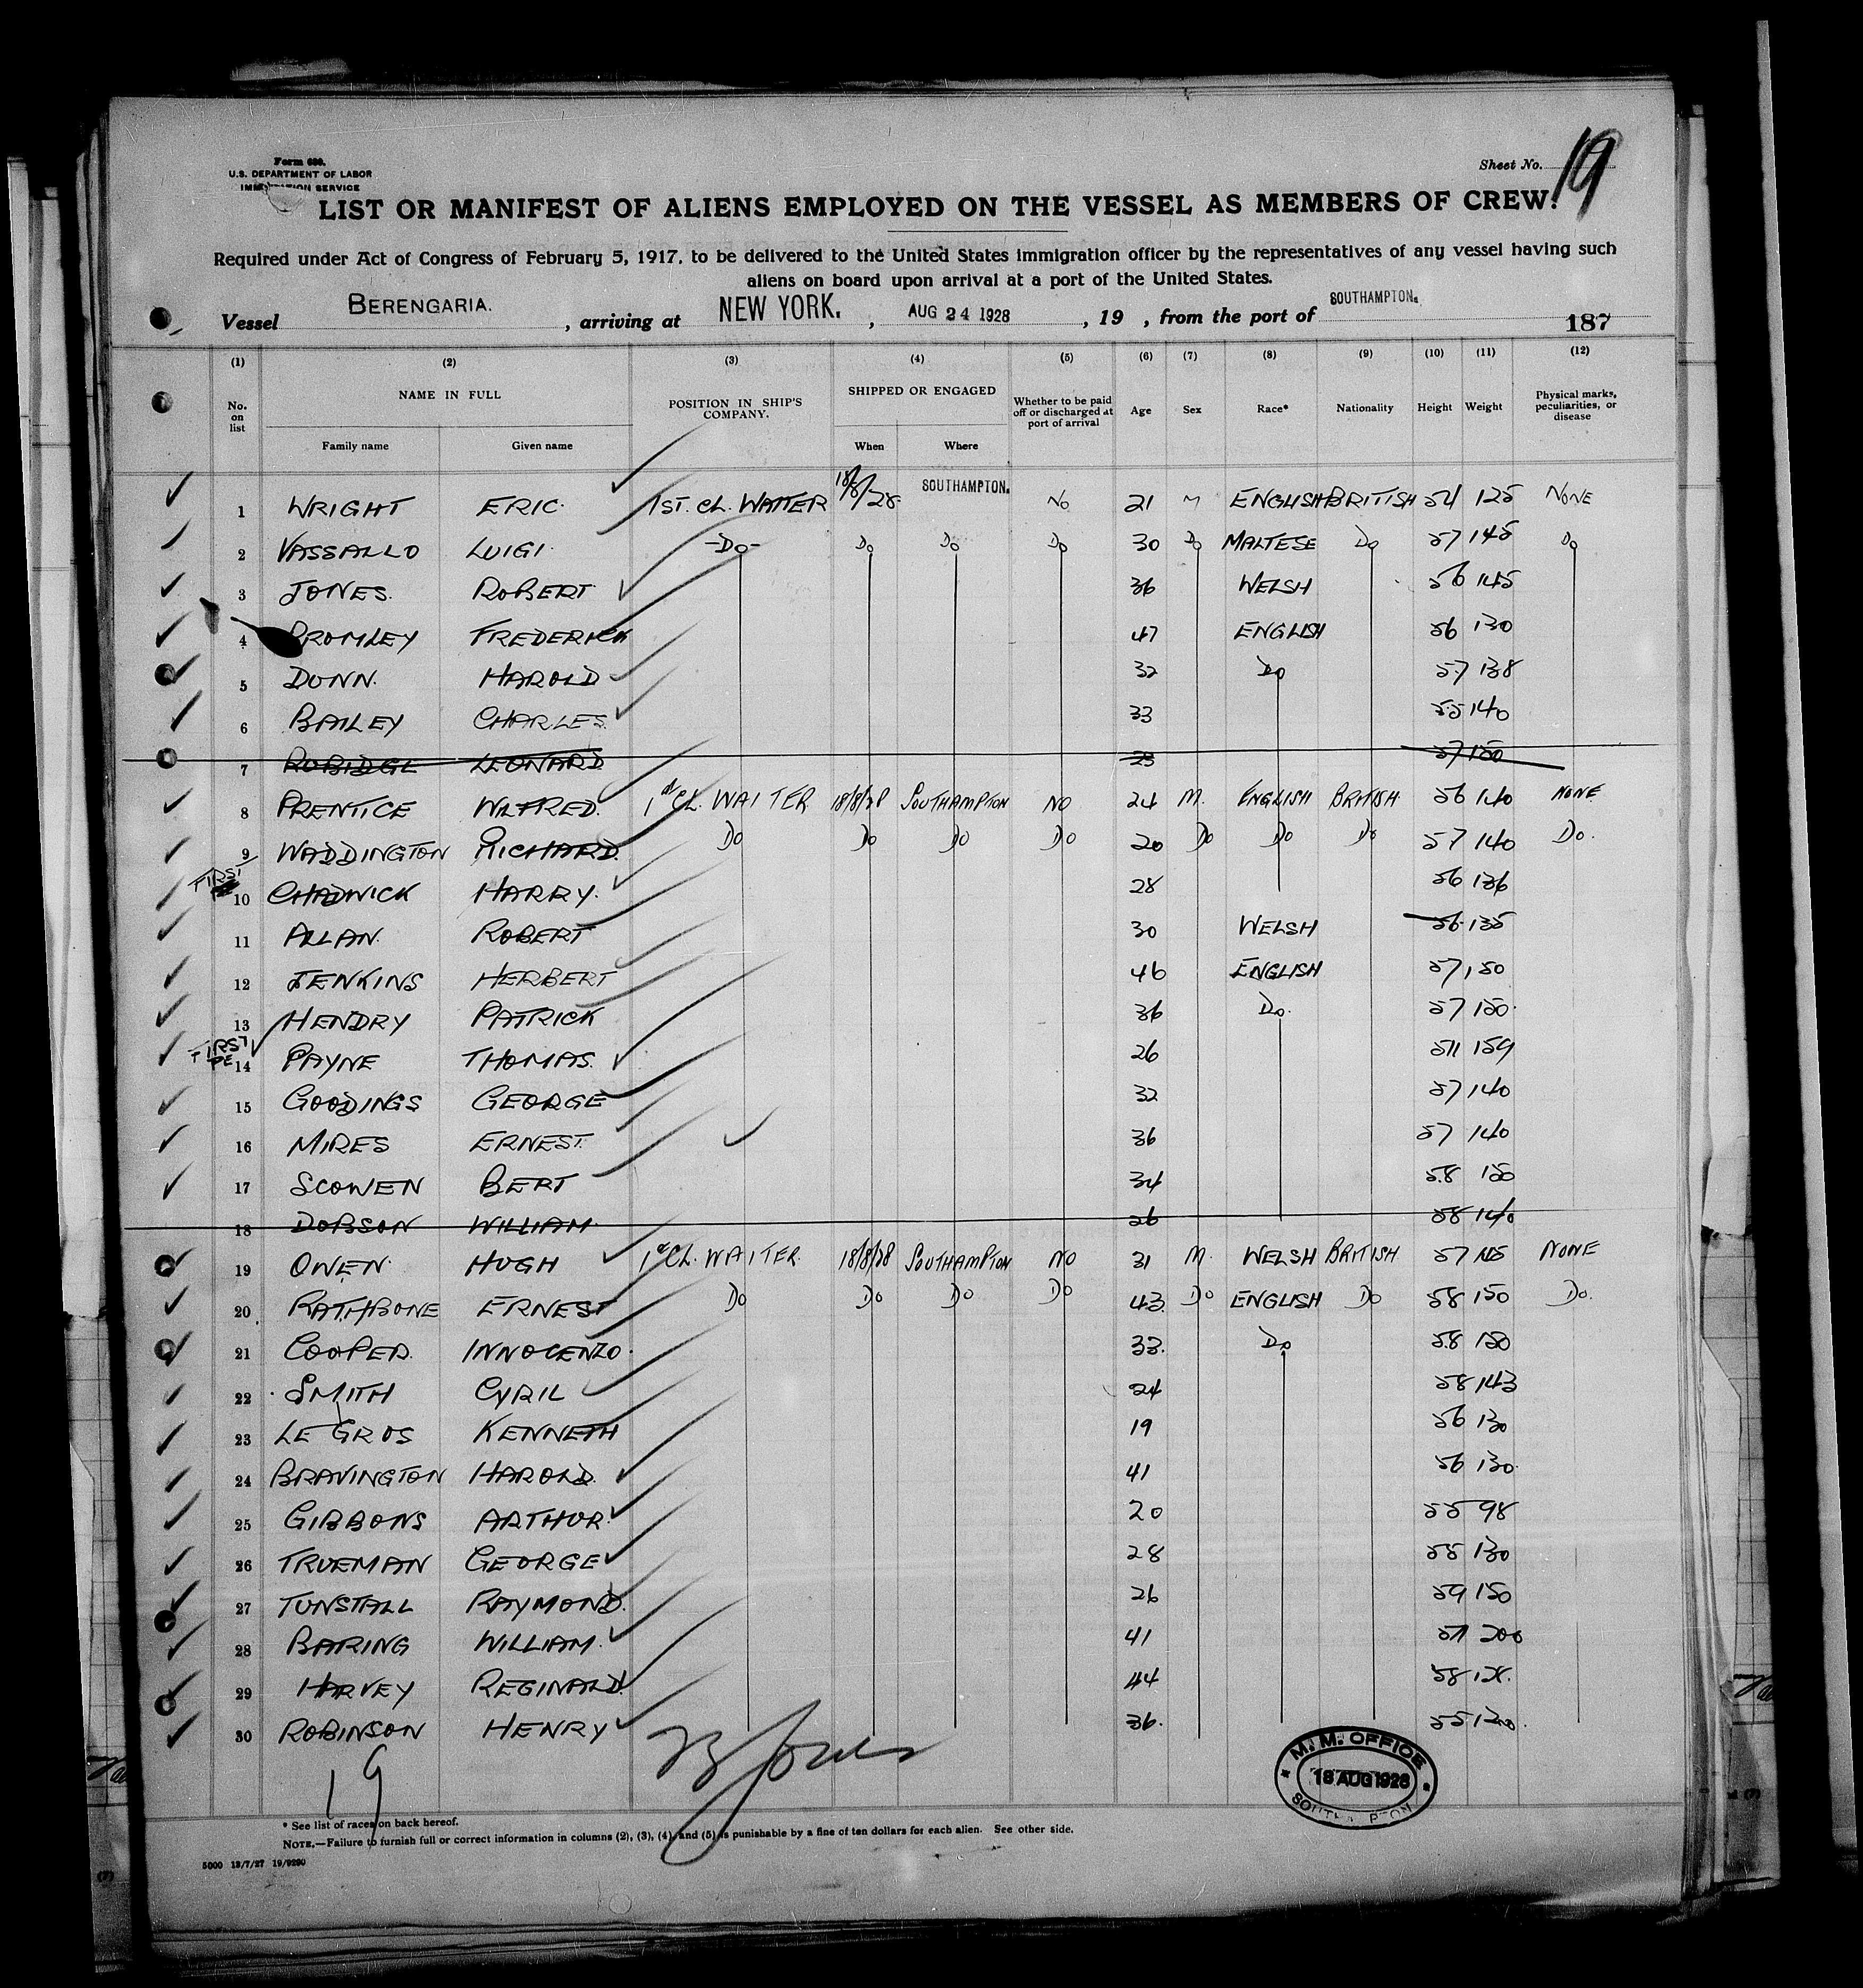 Form 680.
U.S. DEPARTMENT OF LABOR
IMMIGRATION SERVICE
Sheet No. 19
LIST OR MANIFEST OF ALIENS EMPLOYED ON THE VESSEL AS MEMBERS OF CREW.
Required under Act of Congress of February 5, 1917, to be delivered to the United States immigration officer by the representatives of any vessel having such
aliens on board upon arrival at a port of the United States.
Vessel BERENGARIA. , arriving at NEW YORK. , AUG 24 1928 , 19 , from the port of SOUTHAMPTON.
187
(1) (2) (3) (4) (5) (6) (7) (8) (9) (10) (11) (12)
No. on list NAME IN FULL POSITION IN SHIP'S COMPANY. SHIPPED OR ENGAGED Whether to be paid off or discharged at port of arrival Age Sex Race* Nationality Height Weight Physical marks, peculiarities, or disease
Family name Given name When Where
1 WRIGHT ERIC. 1ST. CL. WAITER 18/8/28 SOUTHAMPTON. NO 21 M ENGLISH BRITISH 54 125 NONE
2 VASSALLO LUIGI. -DO- DO DO DO 30 DO MALTESE DO 57 145 DO
3 JONES. ROBERT 36 WELSH 56 145
4 BROMLEY FREDERICK 47 ENGLISH 56 130
5 DUNN. HAROLD 32 DO 57 138
6 BAILEY CHARLES. 33 55 140
7 LEONARD 23 57 150
8 PRENTICE WILFRED. 1st CL. WAITER 18/8/28 SOUTHAMPTON NO 24 M. ENGLISH BRITISH 56 140 NONE
9 WADDINGTON RICHARD. DO DO DO DO 20 DO DO DO 57 140 DO.
FIRST
10 CHADWICK HARRY. 28 56 136
11 ALLAN. ROBERT 30 WELSH 56 135
12 JENKINS HERBERT 46 ENGLISH 57 150
13 HENDRY PATRICK 36 DO. 57 150
FIRST PE
14 PAYNE THOMAS. 26 511 159
15 GOODINGS GEORGE 32 57 140
16 MIRES ERNEST. 36 57 140
17 SCOWEN BERT 34 5.8 150
18 DOBSON WILLIAM. 26 58 140
19 OWEN. HUGH 1st CL. WAITER 18/8/28 SOUTHAMPTON NO 31 M. WELSH BRITISH 57 NONE
20 RATHBONE ERNEST DO DO DO DO 43. DO ENGLISH DO 58 150 DO.
21 COOPER. INNOCENZO. 33. DO 5.8 150
22 SMITH CYRIL 24 58 143
23 LE GROS KENNETH 19 56 130
24 BRAVINGTON HAROLD. 41 56 130
25 GIBBONS ARTHUR. 20 55 98
26 TRUEMAN GEORGE 28 55 130
27 TUNSTALL RAYMOND. 26 59 150
28 BARING WILLIAM. 41 511 200
29 HARVEY REGINALD. 44 58 128.
30 ROBINSON HENRY 36. 55 130.
19
M. M. OFFICE
18 AUG 1928
SOUTHAMPTON
* See list of races on back hereof.
NOTE.—Failure to furnish full or correct information in columns (2), (3), (4), and (5) is punishable by a fine of ten dollars for each alien. See other side.
5000 13/7/27 19/9290